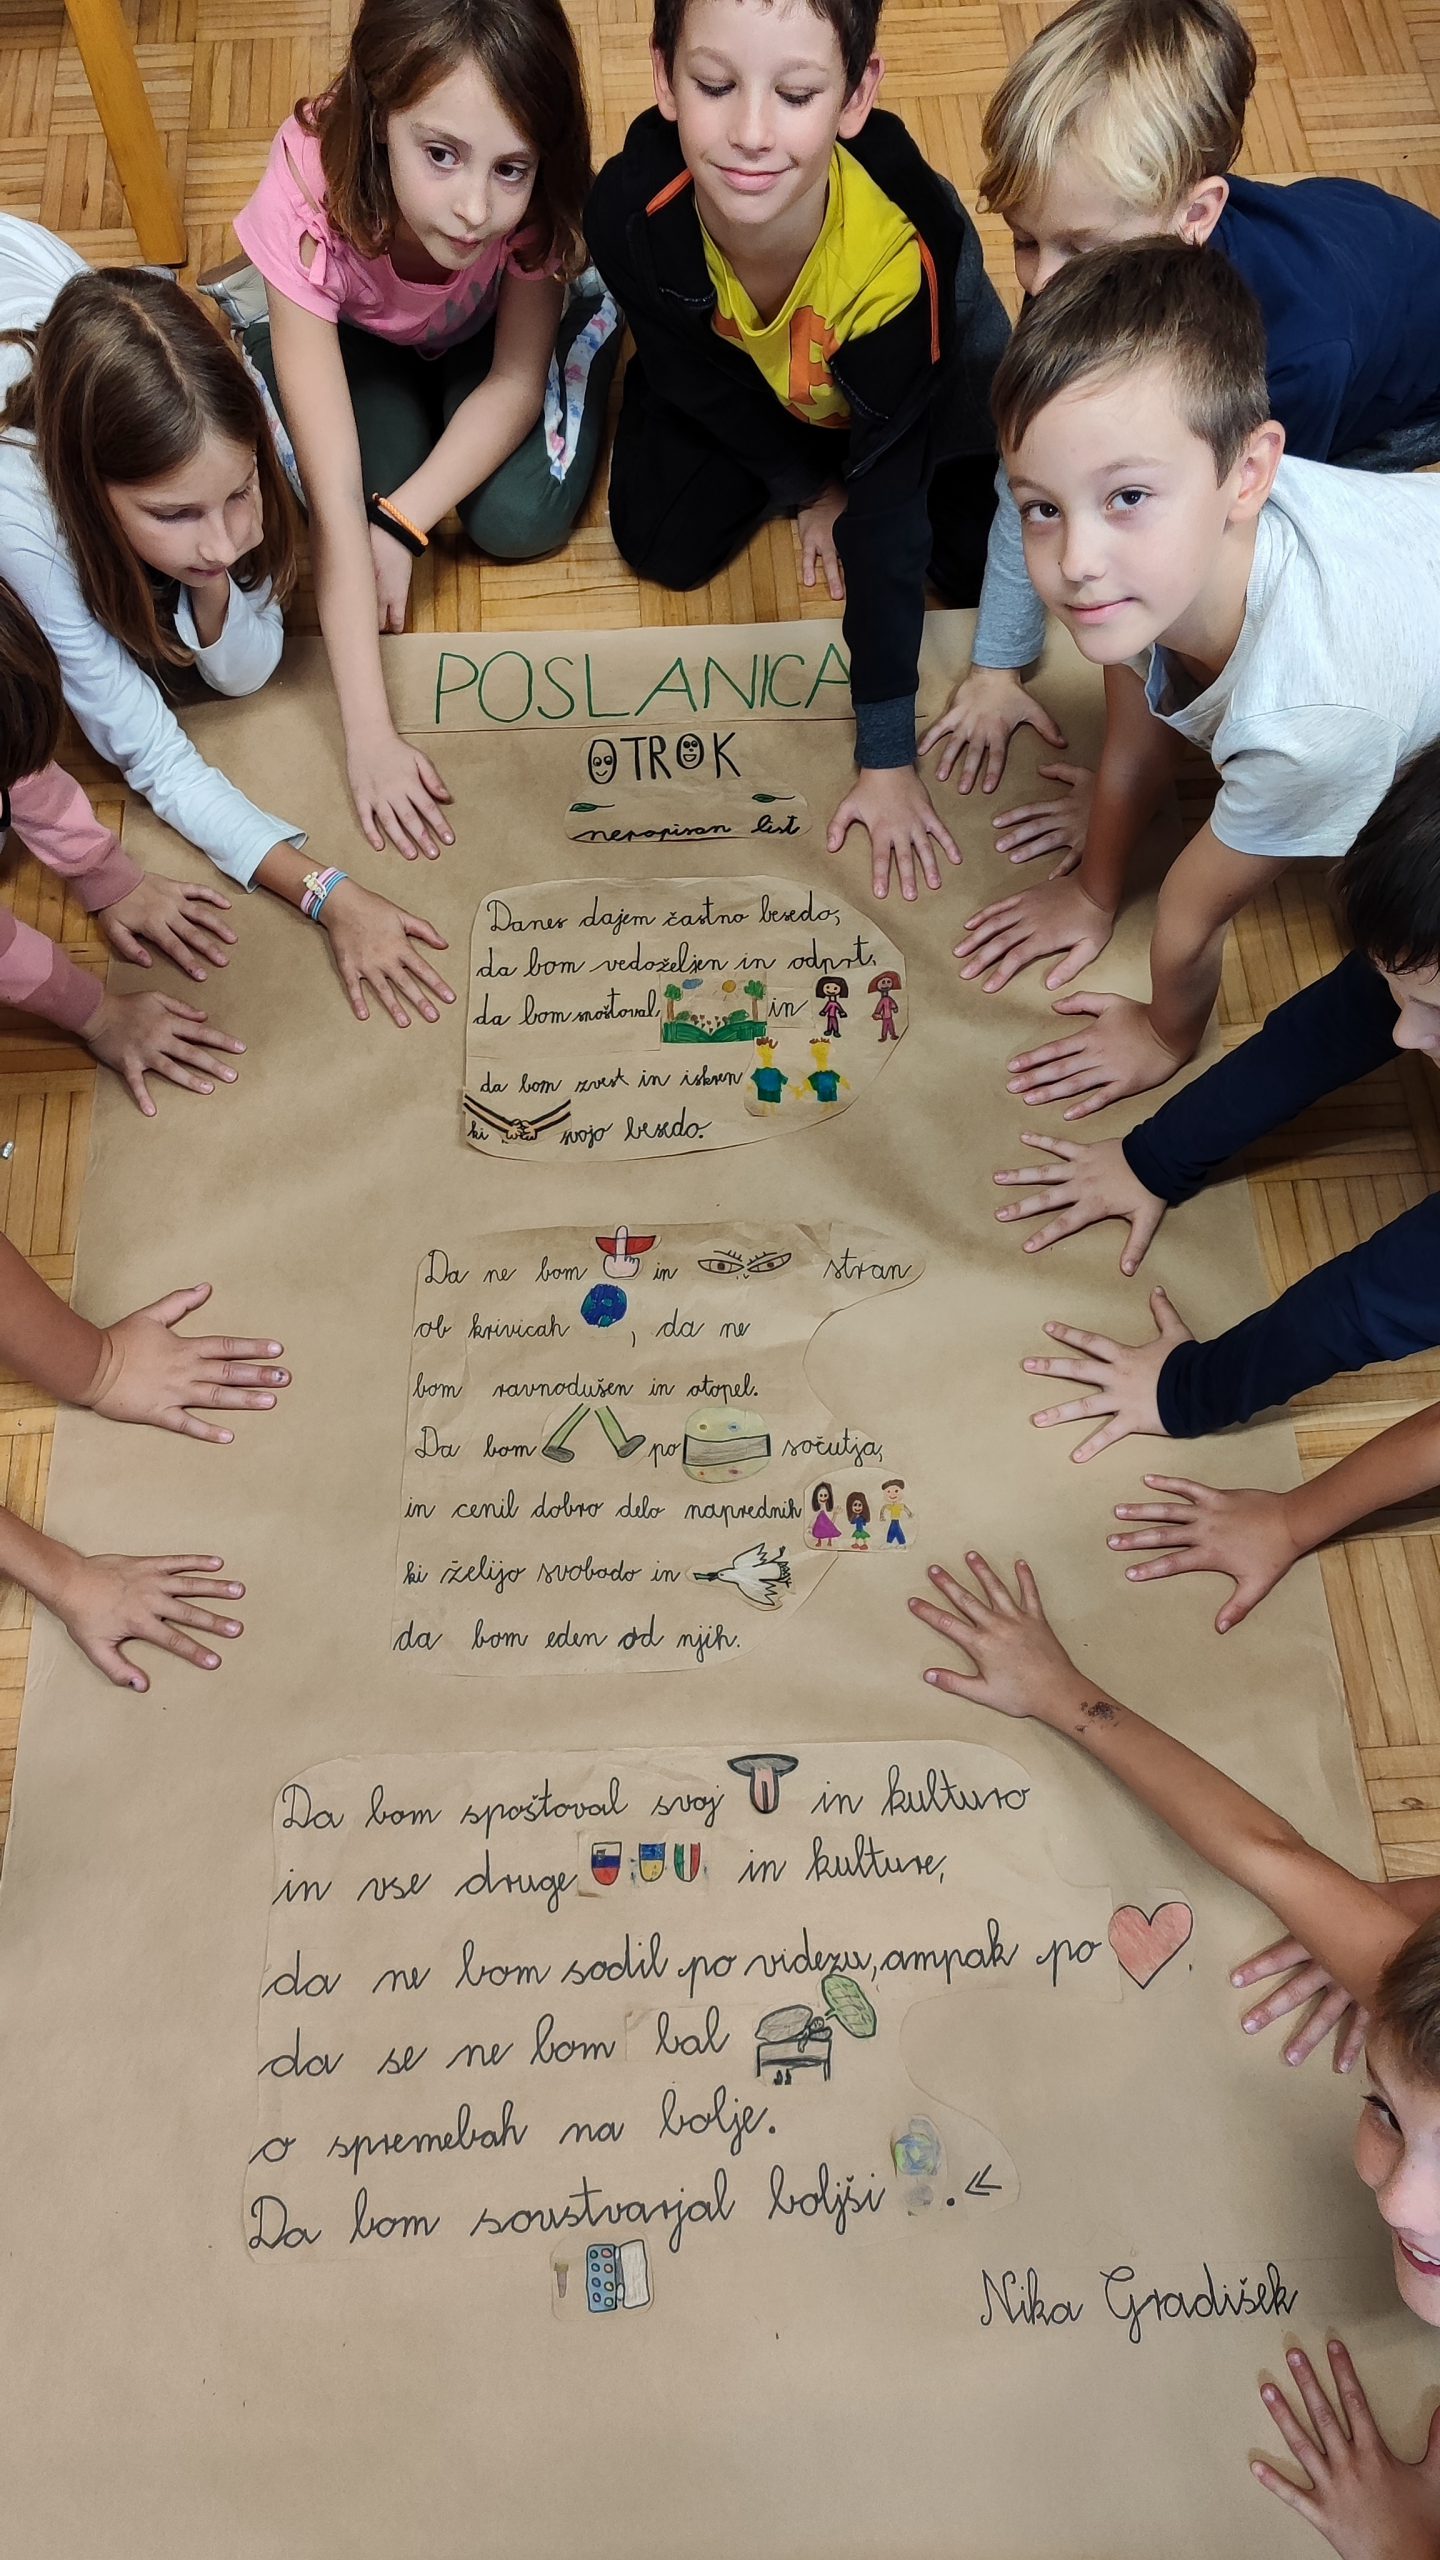 POSLANICA
OTROK
nepopisan list
Danes dajem častno besedo,
da bom vedoželjen in odprt.
da bom spoštoval in
da bom zvest in iskren
ki svojo besedo.
Da ne bom in stran
ob krivicah , da ne
bom ravnodušen in otopel.
Da bom po sočutja,
in cenil dobro delo naprednih
ki želijo svobodo in
da bom eden od njih.
Da bom spoštoval svoj in kulturo
in vse druge in kulture,
da ne bom sodil po videzu, ampak po .
da se ne bom bal
o spremebah na bolje.
Da bom soustvarjal boljši . «
Nika Gradišek